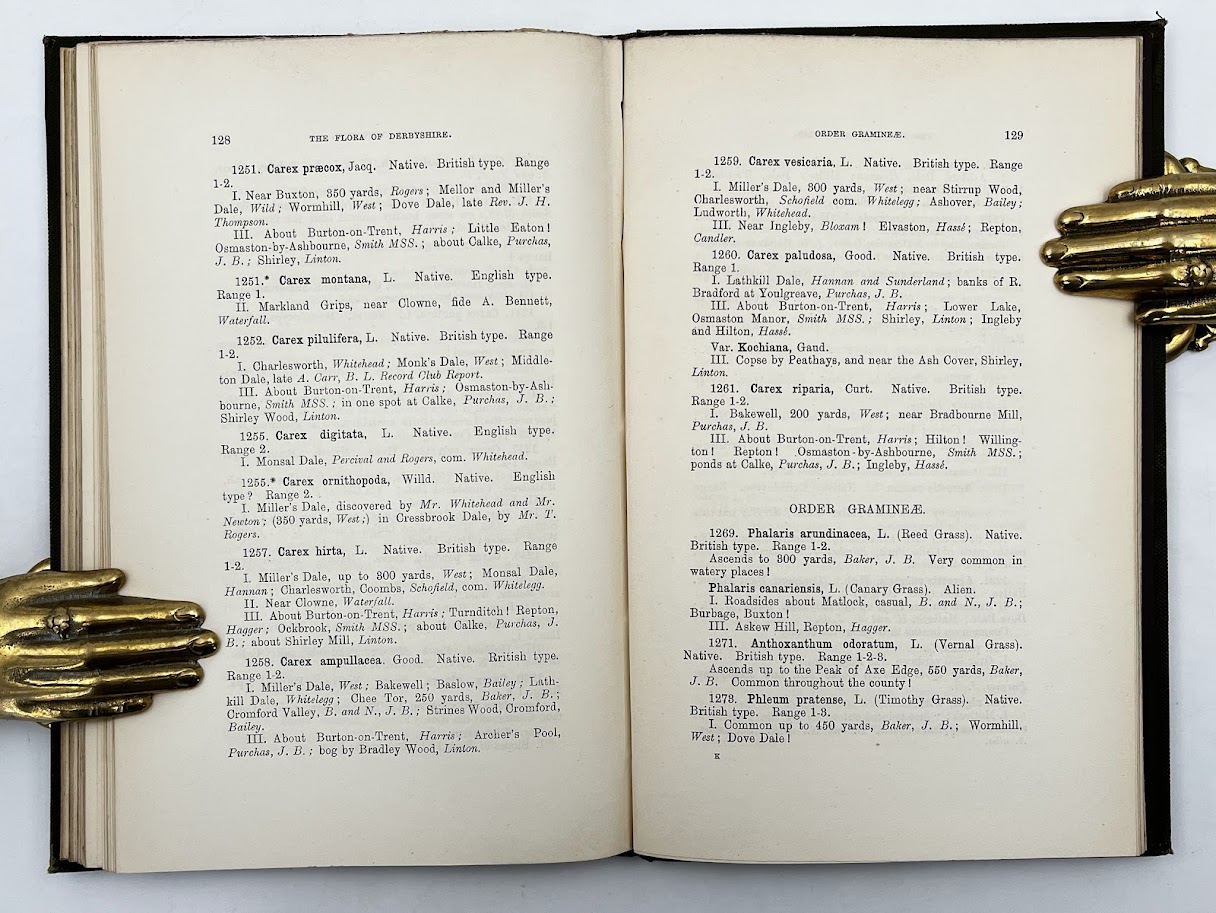 128
THE FLORA OF DERBYSHIRE.
1251. Carex præcox, Jacq. Native. British type. Range
1-2.
I. Near Buxton, 350 yards, Rogers; Mellor and Miller's
Dale, Wild; Wormhill, West; Dove Dale, late Rev. J. H.
Thompson.
III. About Burton-on-Trent, Harris; Little Eaton!
Osmaston-by-Ashbourne, Smith MSS.; about Calke, Purchas,
J. B.; Shirley, Linton.
1251.* Carex montana, L. Native. English type.
Range 1.
II. Markland Grips, near Clowne, fide A. Bennett,
Waterfall.
1252. Carex pilulifera, L. Native. British type. Range
1-2.
I. Charlesworth, Whitehead; Monk's Dale, West; Middle-
ton Dale, late A. Carr, B. L. Record Club Report.
III. About Burton-on-Trent, Harris; Osmaston-by-Ash-
bourne, Smith MSS.; in one spot at Calke, Purchas, J. B.;
Shirley Wood, Linton.
1255. Carex digitata, L. Native. English type.
Range 2.
I. Monsal Dale, Percival and Rogers, com. Whitehead.
1255.* Carex ornithopoda, Willd. Native. English
type? Range 2.
I. Miller's Dale, discovered by Mr. Whitehead and Mr.
Newton; (350 yards, West;) in Cressbrook Dale, by Mr. T.
Rogers.
1257. Carex hirta, L. Native. British type. Range
1-2.
I. Miller's Dale, up to 300 yards, West; Monsal Dale,
Hannan; Charlesworth, Coombs, Schofield, com. Whitelegg.
II. Near Clowne, Waterfall.
III. About Burton-on-Trent, Harris; Turnditch! Repton,
Hagger; Ockbrook, Smith MSS.; about Calke, Purchas, J.
B.; about Shirley Mill, Linton.
1258. Carex ampullacea. Good. Native. British type.
Range 1-2.
I. Miller's Dale, West; Bakewell; Baslow, Bailey; Lath-
kill Dale, Whitelegg; Chee Tor, 250 yards, Baker, J. B.;
Cromford Valley, B. and N., J. B.; Strines Wood, Cromford,
Bailey.
III. About Burton-on-Trent, Harris; Archer's Pool,
Purchas, J. B.; bog by Bradley Wood, Linton.
ORDER GRAMINEÆ.
129
1259. Carex vesicaria, L. Native. British type. Range
1-2.
I. Miller's Dale, 300 yards, West; near Stirrup Wood,
Charlesworth, Schofield com. Whitelegg; Ashover, Bailey;
Ludworth, Whitehead.
III. Near Ingleby, Bloxam! Elvaston, Hassé; Repton,
Candler.
1260. Carex paludosa, Good. Native. British type.
Range 1.
I. Lathkill Dale, Hannan and Sunderland; banks of R.
Bradford at Youlgreave, Purchas, J. B.
III. About Burton-on-Trent, Harris; Lower Lake,
Osmaston Manor, Smith MSS.; Shirley, Linton; Ingleby
and Hilton, Hassé.
Var. Kochiana, Gaud.
III. Copse by Peathays, and near the Ash Cover, Shirley,
Linton.
1261. Carex riparia, Curt. Native. British type.
Range 1-2.
I. Bakewell, 200 yards, West; near Bradbourne Mill,
Purchas, J. B.
III. About Burton-on-Trent, Harris; Hilton! Willing-
ton! Repton! Osmaston-by-Ashbourne, Smith MSS.;
ponds at Calke, Purchas, J. B.; Ingleby, Hassé.
ORDER GRAMINEÆ.
1269. Phalaris arundinacea, L. (Reed Grass). Native.
British type. Range 1-2.
Ascends to 300 yards, Baker, J. B. Very common in
watery places!
Phalaris canariensis, L. (Canary Grass). Alien.
I. Roadsides about Matlock, casual, B. and N., J. B.;
Burbage, Buxton!
III. Askew Hill, Repton, Hagger.
1271. Anthoxanthum odoratum, L. (Vernal Grass).
Native. British type. Range 1-2-3.
Ascends up to the Peak of Axe Edge, 550 yards, Baker,
J. B. Common throughout the county!
1273. Phleum pratense, L. (Timothy Grass). Native.
British type. Range 1-3.
I. Common up to 450 yards, Baker, J. B.; Wormhill,
West; Dove Dale!
K